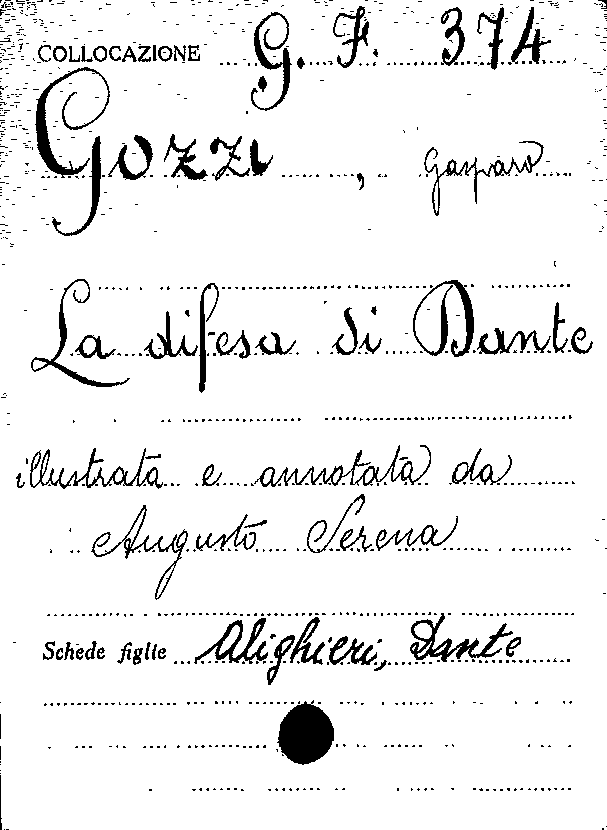 COLLOCAZIONE G. F. 374
Gozzi, Gasparo
La difesa di Dante
illustrata e annotata da
Augusto Serena
Schede figlie Alighieri, Dante